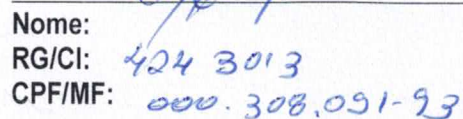 Nome:
RG/CI: 424 3013
CPF/MF: 000.308.091-93